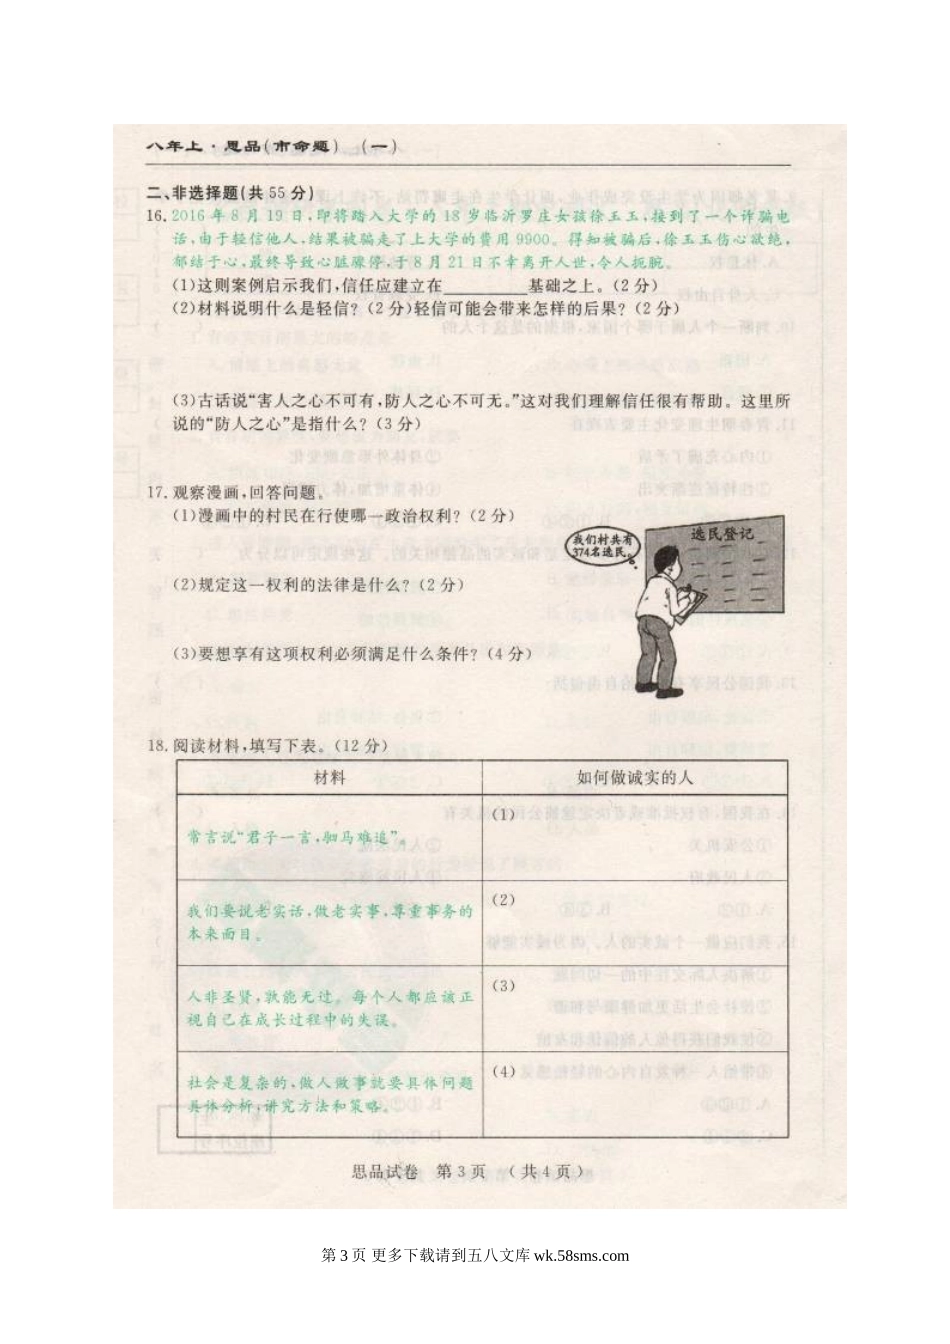 八年上·思品(市命题)　(一)
二、非选择题(共 55 分)
16. 2016 年 8 月 19 日,即将踏入大学的 18 岁临沂罗庄女孩徐玉玉,接到了一个诈骗电
话,由于轻信他人,结果被骗走了上大学的费用 9900。得知被骗后,徐玉玉伤心欲绝,
郁结于心,最终导致心脏骤停,于 8 月 21 日不幸离开人世,令人扼腕。
(1)这则案例启示我们,信任应建立在________基础之上。(2 分)
(2)材料说明什么是轻信? (2 分)轻信可能会带来怎样的后果? (2 分)
(3)古话说“害人之心不可有,防人之心不可无。”这对我们理解信任很有帮助。这里所
说的“防人之心”是指什么? (3 分)
17. 观察漫画,回答问题。
(1)漫画中的村民在行使哪一政治权利? (2 分)
我们村共有
374名选民。
选民登记
(2)规定这一权利的法律是什么? (2 分)
(3)要想享有这项权利必须满足什么条件? (4 分)
18. 阅读材料,填写下表。(12 分)
材料　如何做诚实的人
(1)
常言说“君子一言,驷马难追”。
(2)
我们要说老实话,做老实事,尊重事务的
本来面目。
(3)
人非圣贤,孰能无过。每个人都应该正
视自己在成长过程中的失误。
(4)
社会是复杂的,做人做事就要具体问题
具体分析,讲究方法和策略。
思品试卷　第 3 页　(共 4 页)
第 3 页 更多下载请到五八文库 wk.58sms.com